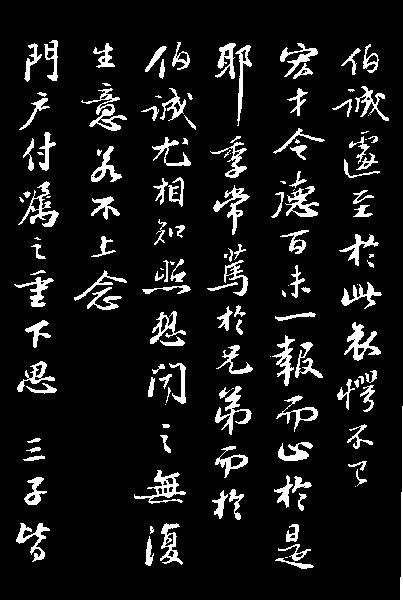 伯誠遽至於此哀愕不已
宏才令德百未一報而止於是
耶季常篤於兄弟而於
伯誠尤相知照想聞之無復
生意若不上念
門户付囑之重下思 三子皆